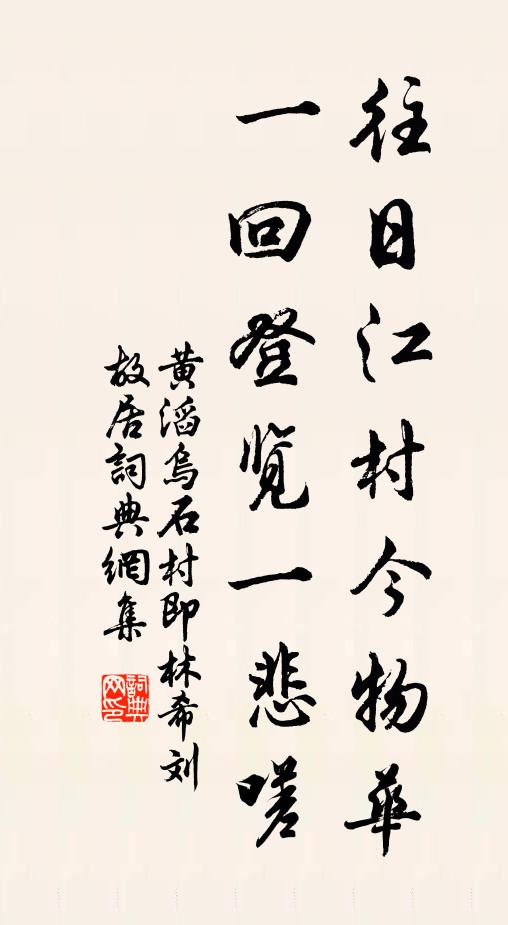 往日江村今物華
一回登览一悲嗟
黄滔烏石村即林希刘
故居詞典網集
詞典
网印